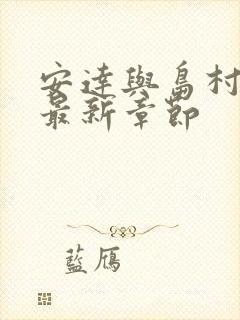 安達與島村
最新章節
藍鴈